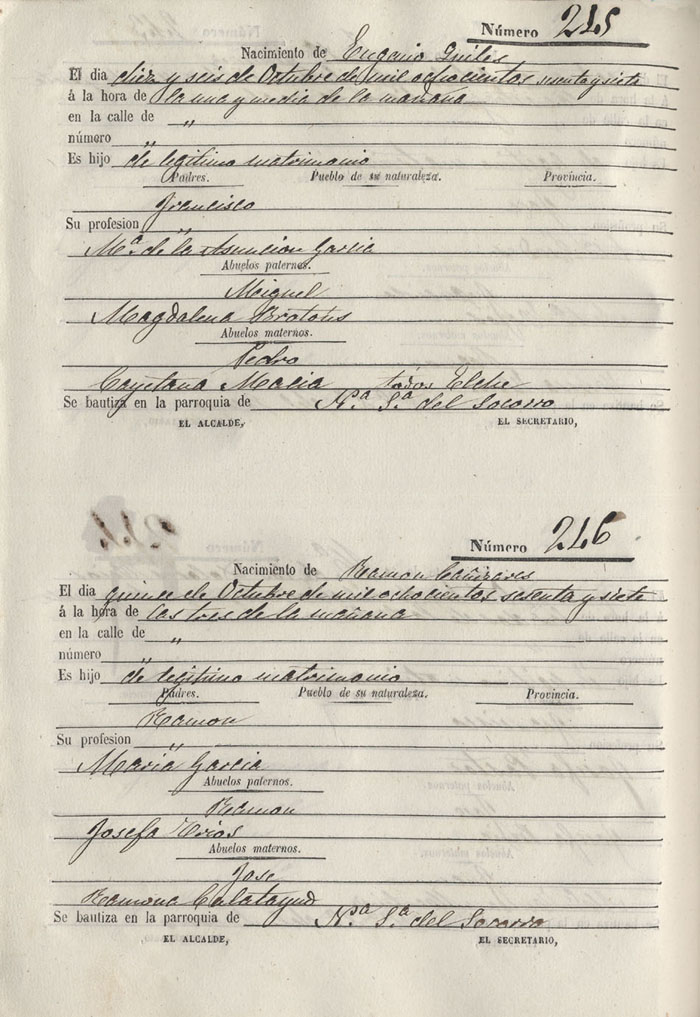 Número 245
Nacimiento de Eugenio Quiles
El dia diez y seis de Octubre de mil ochocientos sesenta y siete
á la hora de la una y media de la mañana
en la calle de "
número "
Es hijo de legitimo matrimonio
Padres. Pueblo de su naturaleza. Provincia.
Francisco
Su profesion "
Mª de la Asuncion Garcia
Abuelos paternos.
Miguel
Magdalena Brotons
Abuelos maternos.
Pedro
Cayetana Macia todos Elche
Se bautiza en la parroquia de Nª Sª del Socorro
EL ALCALDE, EL SECRETARIO,
Número 246
Nacimiento de Ramon Cañizares
El dia quince de Octubre de mil ochocientos sesenta y siete
á la hora de las tres de la mañana
en la calle de "
número "
Es hijo de legitimo matrimonio
Padres. Pueblo de su naturaleza. Provincia.
Ramon
Su profesion "
Maria Garcia
Abuelos paternos.
Ramon
Josefa Rios
Abuelos maternos.
Jose
Ramona Calatayud
Se bautiza en la parroquia de Nª Sª del Socorro
EL ALCALDE, EL SECRETARIO,